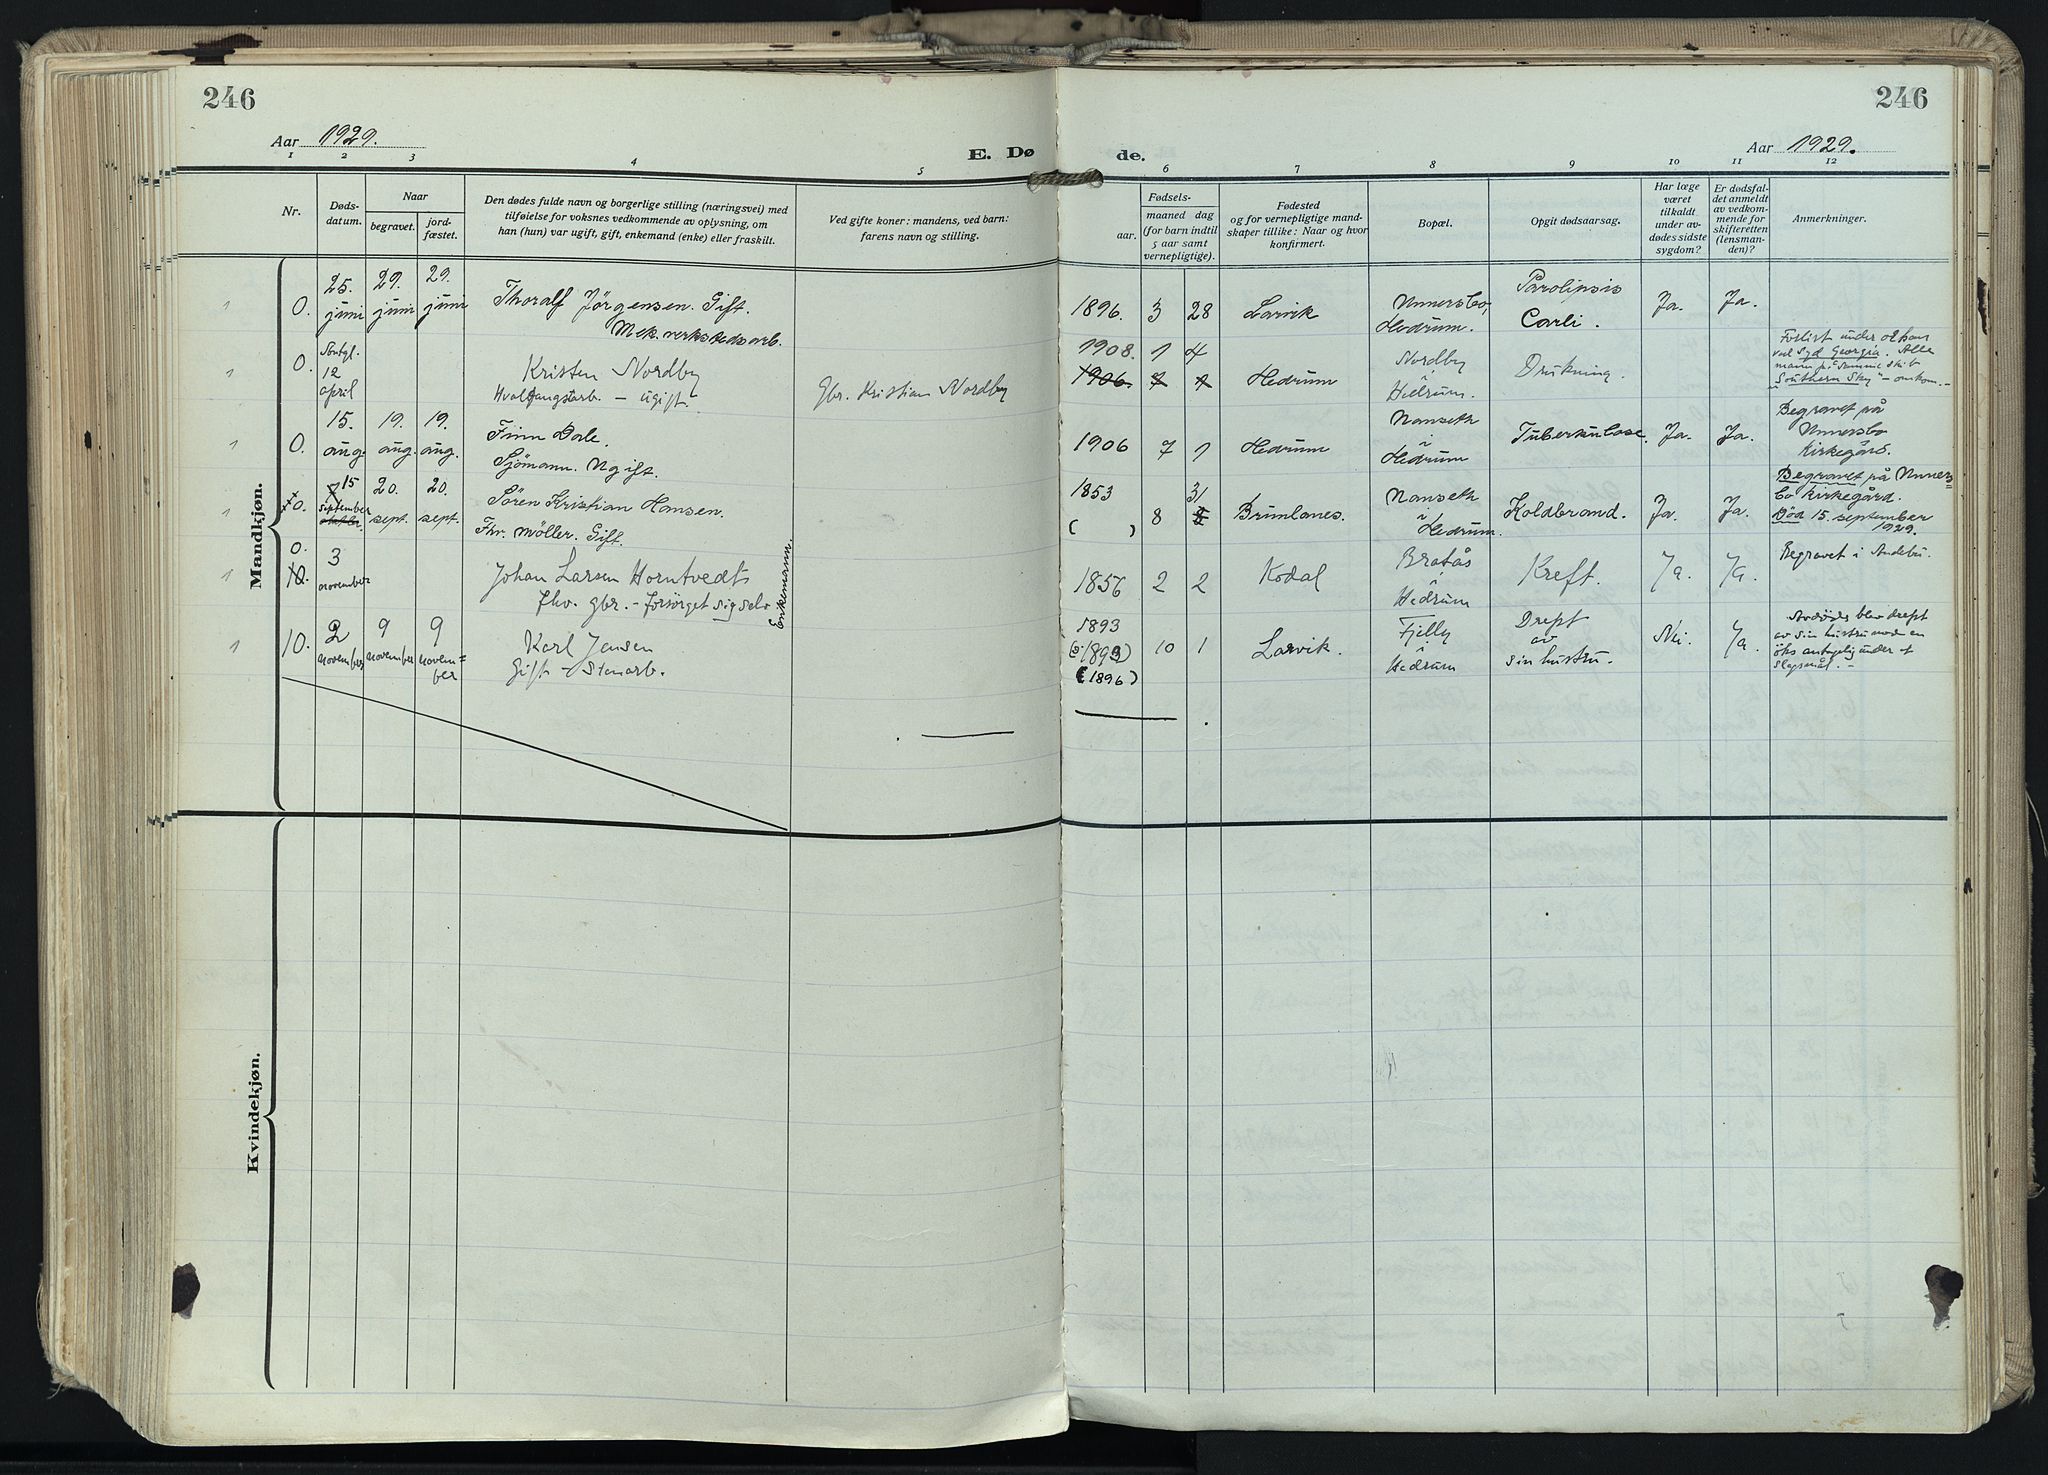 246
246
Aar 1929.
E. Dø
de.
Aar 1929.
1 2 3 4 5 6 7 8 9 10 11 12
Nr.
Døds-
datum.
Naar
begravet.
jord-
fæstet.
Den dødes fulde navn og borgerlige stilling (næringsvei) med
tilføielse for voksnes vedkommende av oplysning, om
han (hun) var ugift, gift, enkemand (enke) eller fraskilt.
Ved gifte koner: mandens, ved barn:
farens navn og stilling.
Fødsels-
aar.
maaned dag
(for barn indtil
5 aar samt
vernepligtige).
Fødested
og for vernepligtige mand-
skaper tillike: Naar og hvor
konfirmert.
Bopæl.
Opgit dødsaarsag.
Har læge
været
tilkaldt
under av-
dødes sidste
sygdom?
Er dødsfal-
det anmeldt
av vedkom-
mende for
skifteretten
(lensman-
den)?
Anmerkninger.
Mandkjøn.
1
0.
25.
juni
29.
juni
29.
juni
Thoralf Jørgensen. Gift.
Mek. verkstedsarb.
1896. 3 28
Larvik
Unnersbo,
Hedrum.
Parolipsis
Carli.
Ja.
Ja.
1
0.
12
april
Kristen Nordby
Hvalfangstarb. - ugift.
Gbr. Kristian Nordby
1908. 1 4
1906. 7 1
Hedrum
Nordby
i
Hedrum.
Drukning.
Forlist under
ved Syd Georgia. Alle
mann på samme skib
"Southern Sky" - omkom. -
1
0.
15.
aug.
19.
aug.
19.
aug.
Finn Dale.
Sjömann. Ugift.
1906 7 1
Hedrum
Nanseth
i
Hedrum
Tuberkulose.
Ja.
Ja.
Begravet på
Unnersbo
kirkegård.
1
0.
15
september
oktober
20.
sept.
20.
sept.
Sören Kristian Hansen.
Fhv. möller. Gift.
1853
( )
8
31
Brunlanes.
Nanseth
i
Hedrum.
Koldbrand.
Ja.
Ja.
Begravet på Unners=
bo kirkegård.
Död 15. september
1929.
1
0.
10.
3
november
Johan Larsen Horntvedt
fhv. gbr. - forsörget sig selv
Enkemann.
1856 2 2
Kodal
Bratås
i
Hedrum
Kreft.
Ja.
Ja.
Begravet i Andebu.
1
10.
2
november
9
november
9
novem=
ber
Karl Jensen
Gift - Stenarb.
1893
(1896)
10 1
Larvik.
Fjelly
i
Hedrum
Drept
av
sin hustru.
Nei
Ja.
Avdöde blev drept
av sin hustru med en
öks antagelig under et
slagsmål. -
Kvindekjøn.